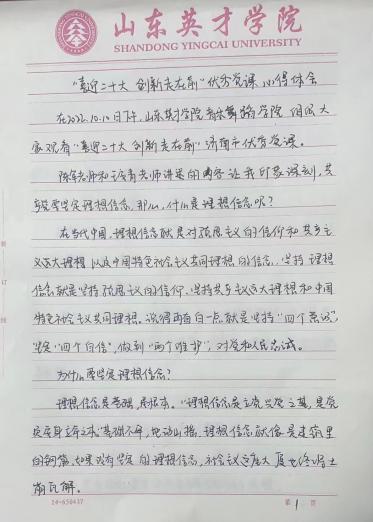 山东英才学院
SHANDONG YINGCAI UNIVERSITY
"喜迎二十大 创新走在前"优秀党课心得体会
在2022.10.10日下午,山东英才学院音乐舞蹈学院组织大
家观看"喜迎二十大 创新走在前"济南市优秀党课。
老师和王老师讲述的内容让我印象深刻,其
坚定理想信念,那么,什么是理想信念呢?
在当代中国,理想信念就是对马克思主义的信仰和共产主
义远大理想以及中国特色社会主义共同理想的信念,坚持理想
信念就是坚持马克思主义的信仰、坚持共产主义远大理想和中国
特色社会主义共同理想。说得再直白一点就是坚持"四个意识",
坚定"四个自信",做到"两个维护",对党和人民忠诚。
为什么要坚定理想信念?
理想信念是基础,是根本。"理想信念是立党兴党之基,是党
员安身立命之本"基础不牢,地动山摇。理想信念就像是建筑里
的钢筋,如果没有坚定的理想信念,社会主义这座大厦也终将土
崩瓦解。
14-650437
第 1 页